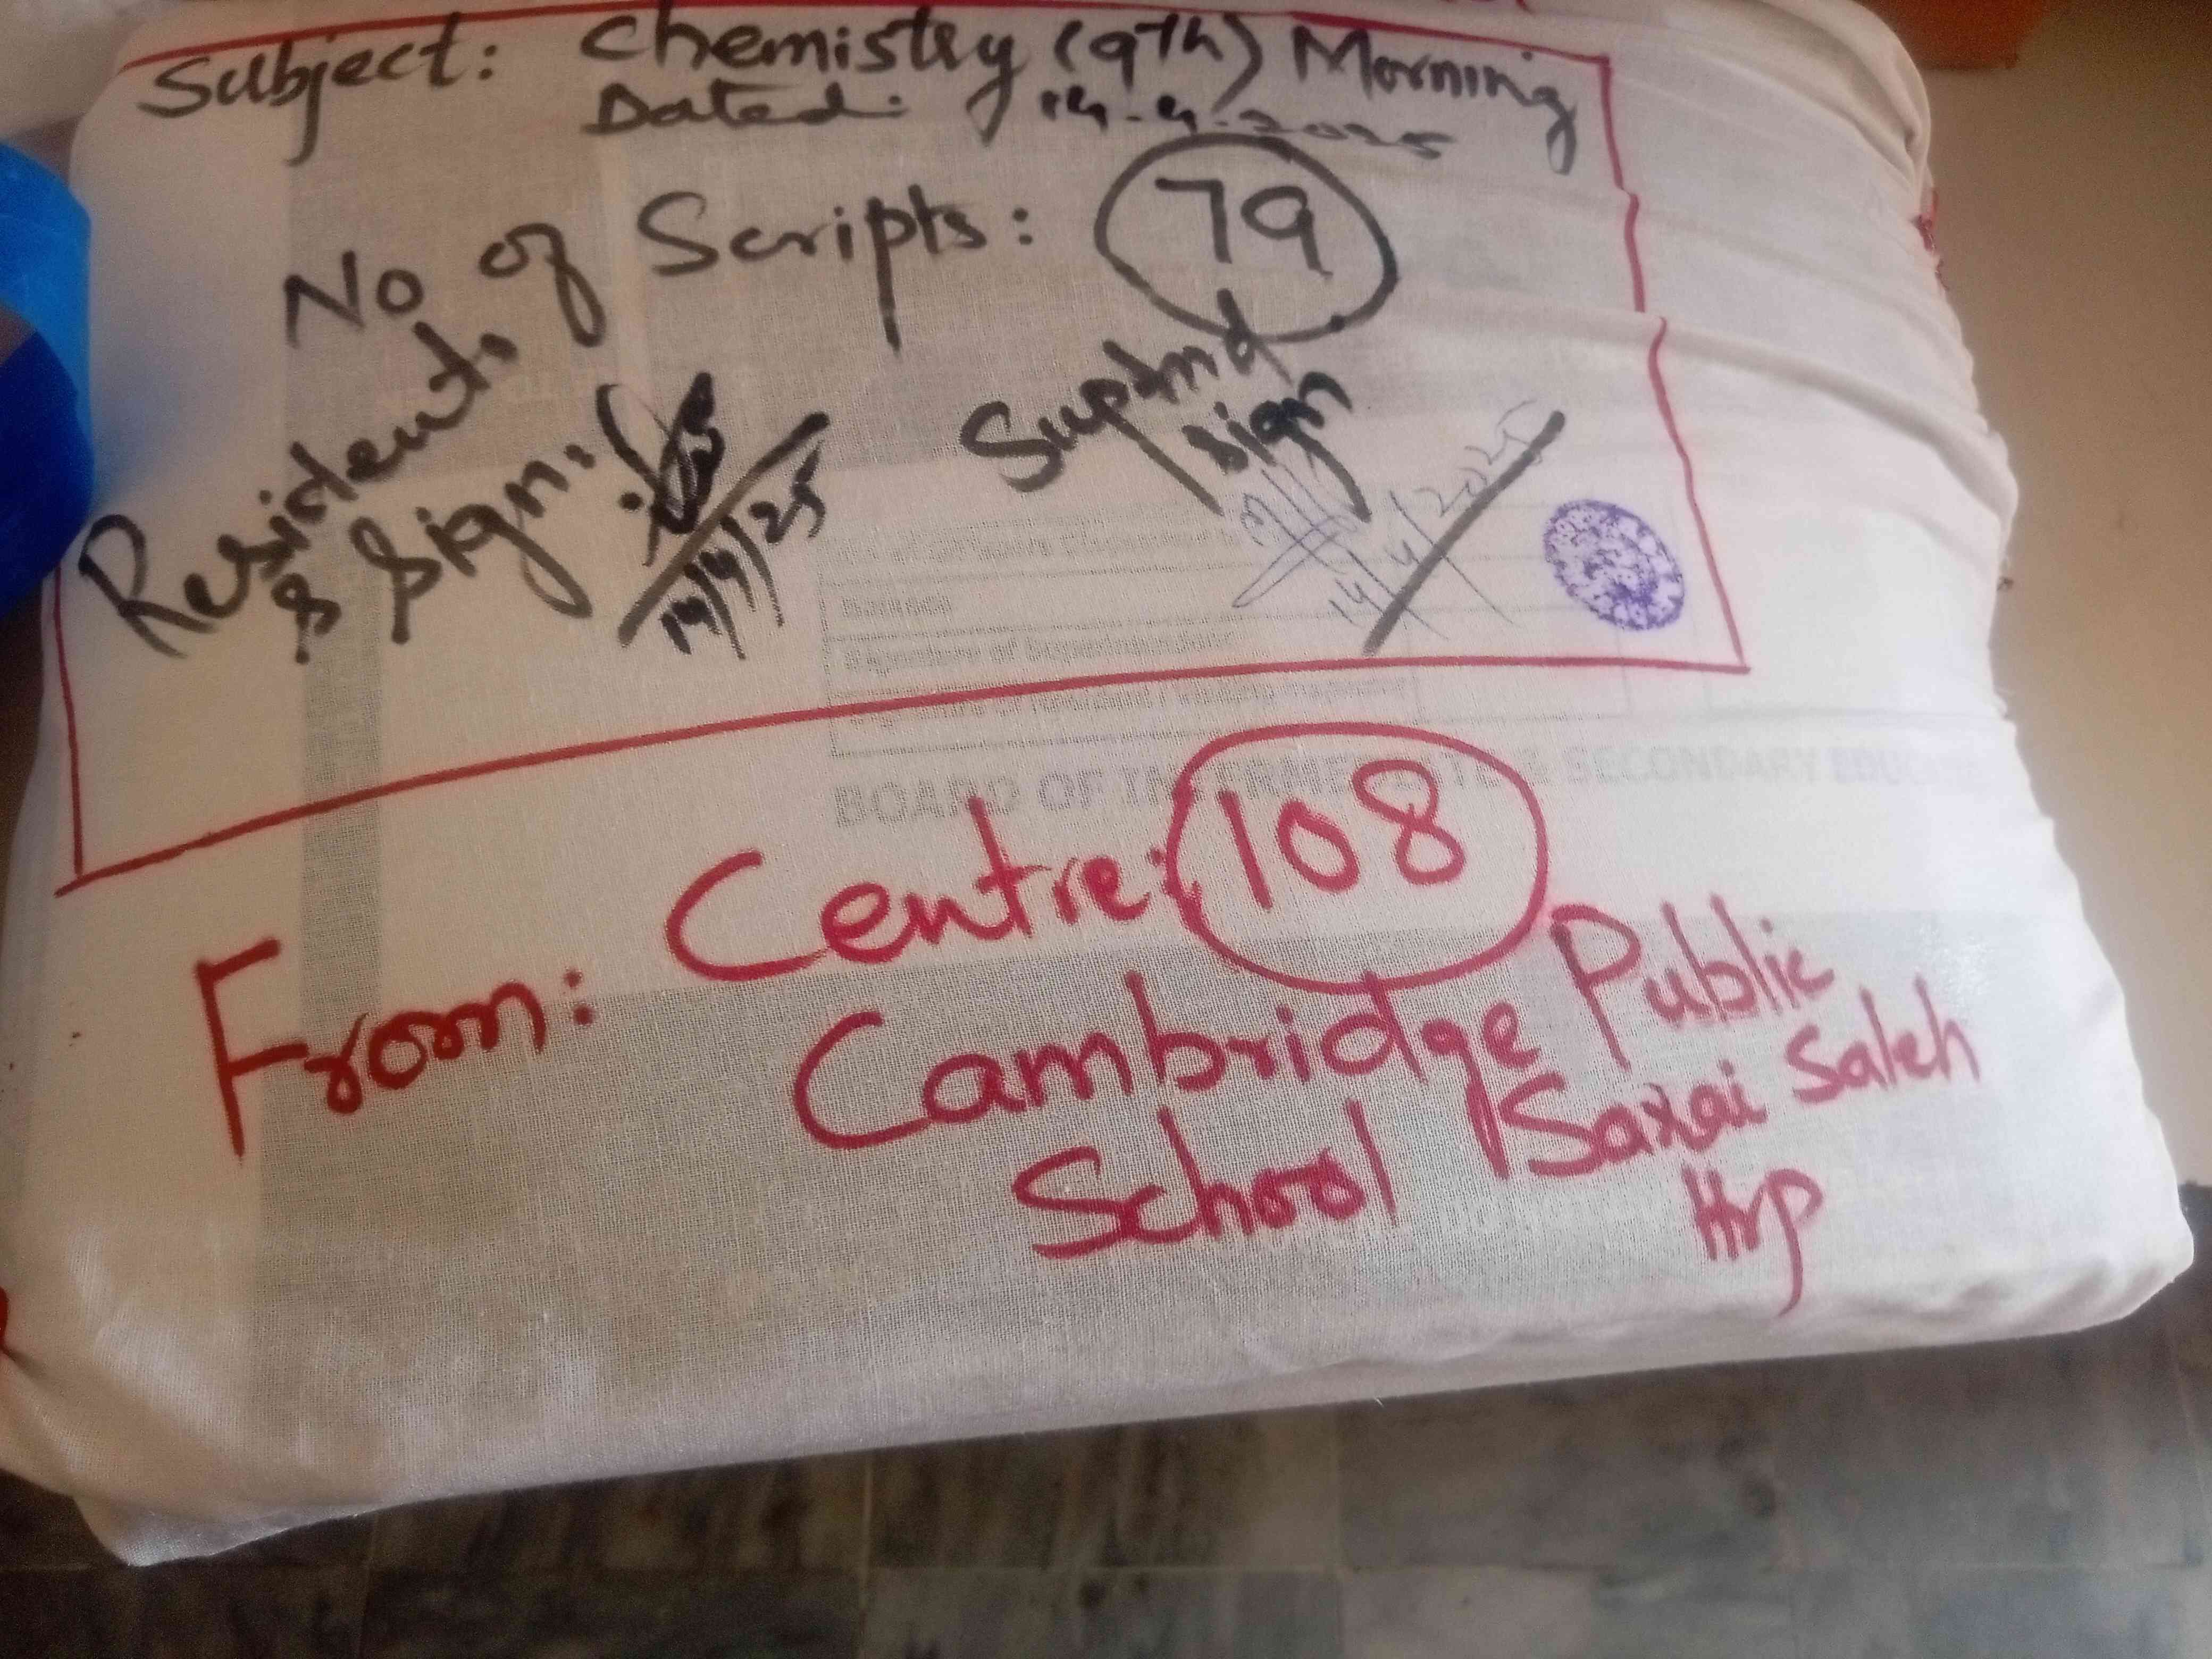 Subject: Chemistry (9Th) Morning
Dated: 14-4-2025
No of Scripts: 79
Resident,s
Sign:
14/4/25
Suptnd
Sign
14/4/2025
Signature of Superintendent
BOARD OF INTERMEDIATE & SECONDARY EDUC
From: Centre: 108
Cambridge Public
School Sarai Saleh
Hrp